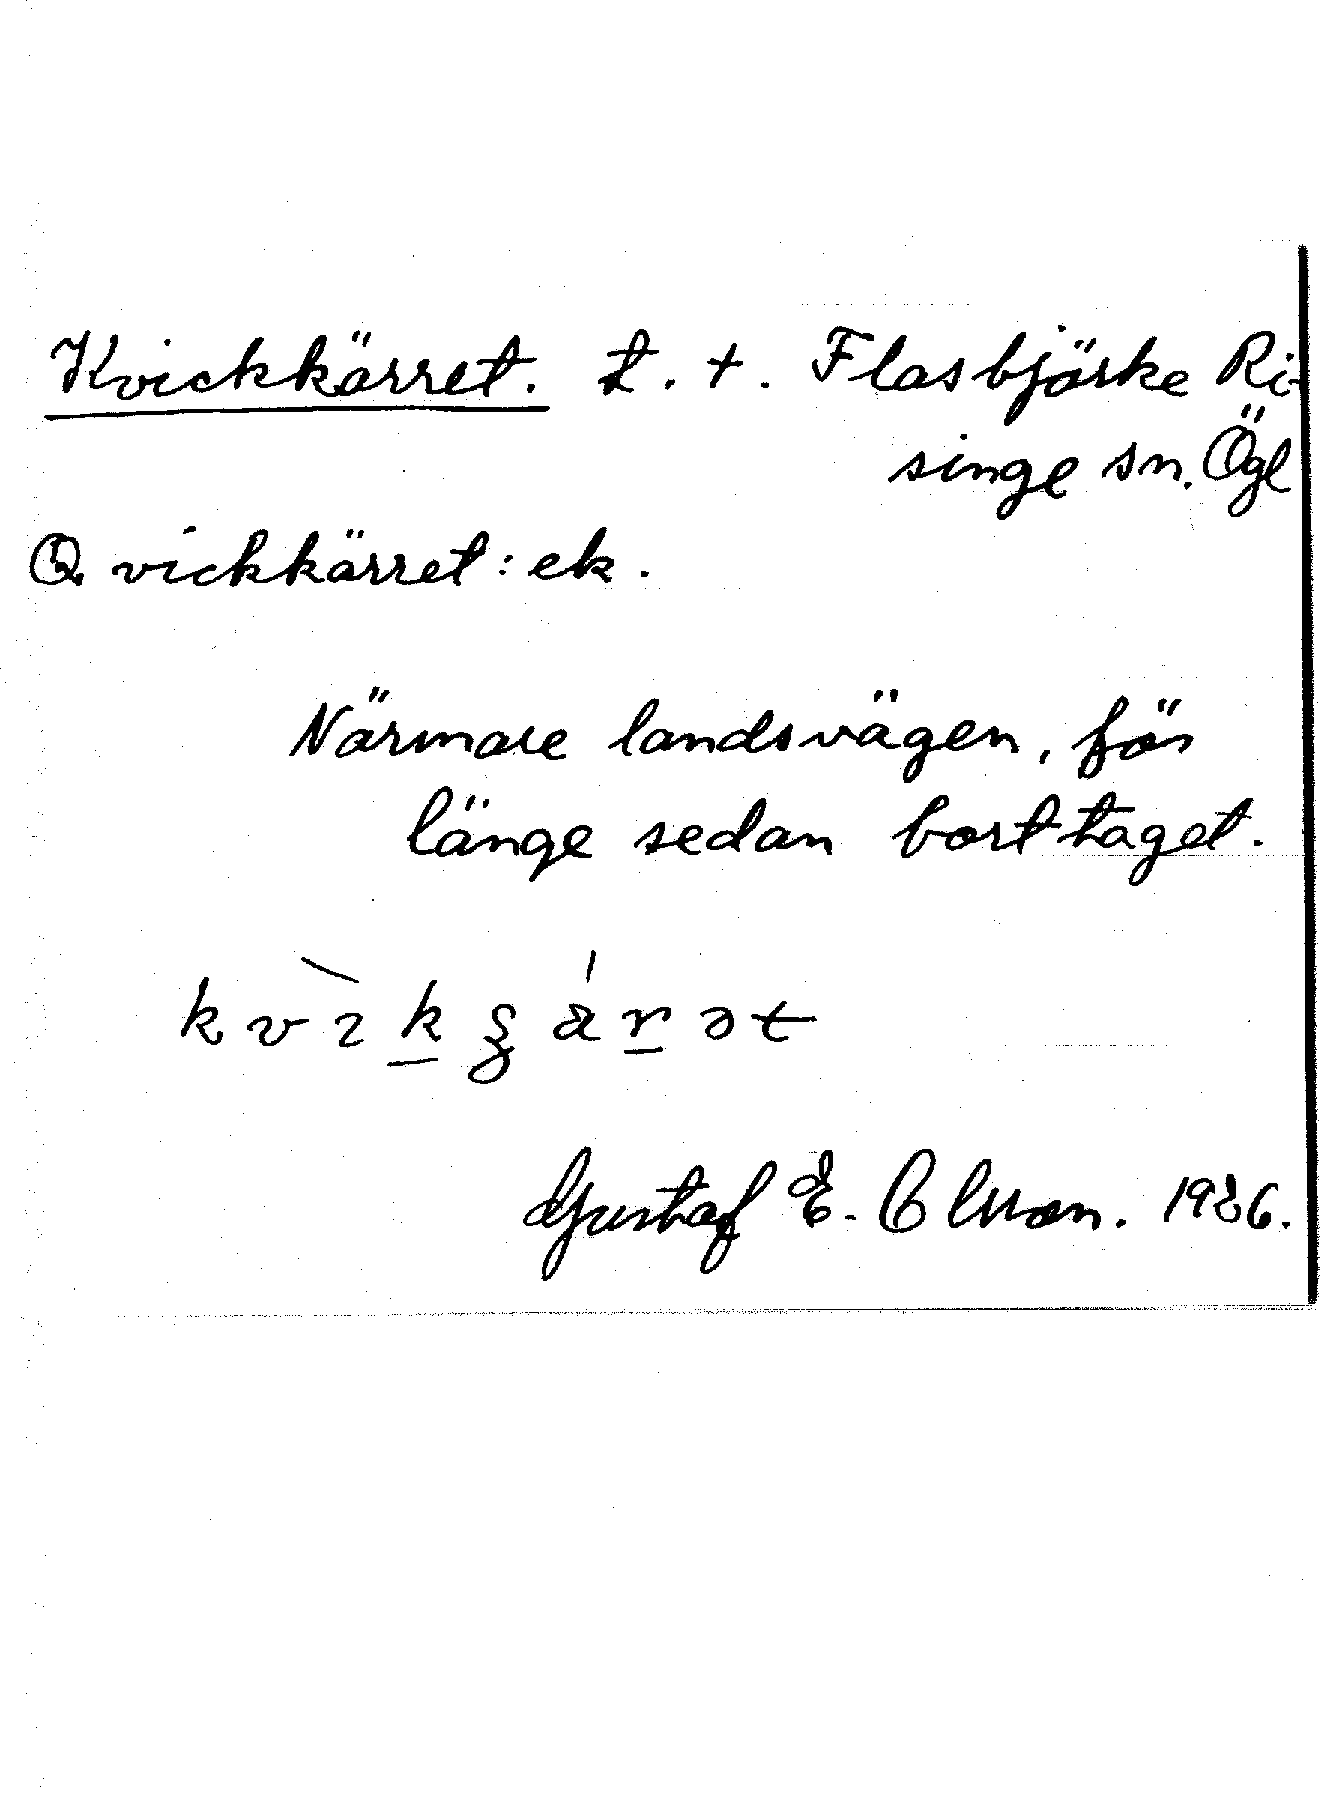 Kvickkärret. t. t. Flasbjörke Ri-
singe sn. Ögl
Qvickkärret: ek.
Närmare landsvägen, för
länge sedan borttaget.
Gustaf E. Olsson. 1936.